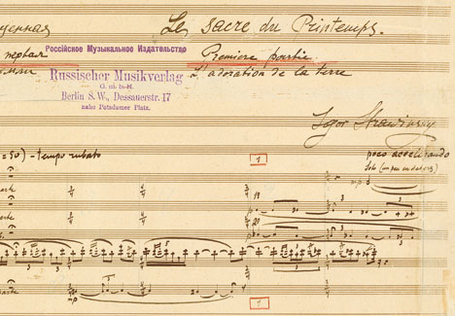 щенная Le Sacre du Printemps.
Россійское Музыкальное Издательство
первая Première partie
L'adoration de la terre
Russischer Musikverlag
G. m. b. H.
Berlin S.W., Dessauerstr. 17
nahe Potsdamer Platz.
Igor Strawinsky
= 50) - tempo rubato
1
poco accelerando
Solo
mp
1